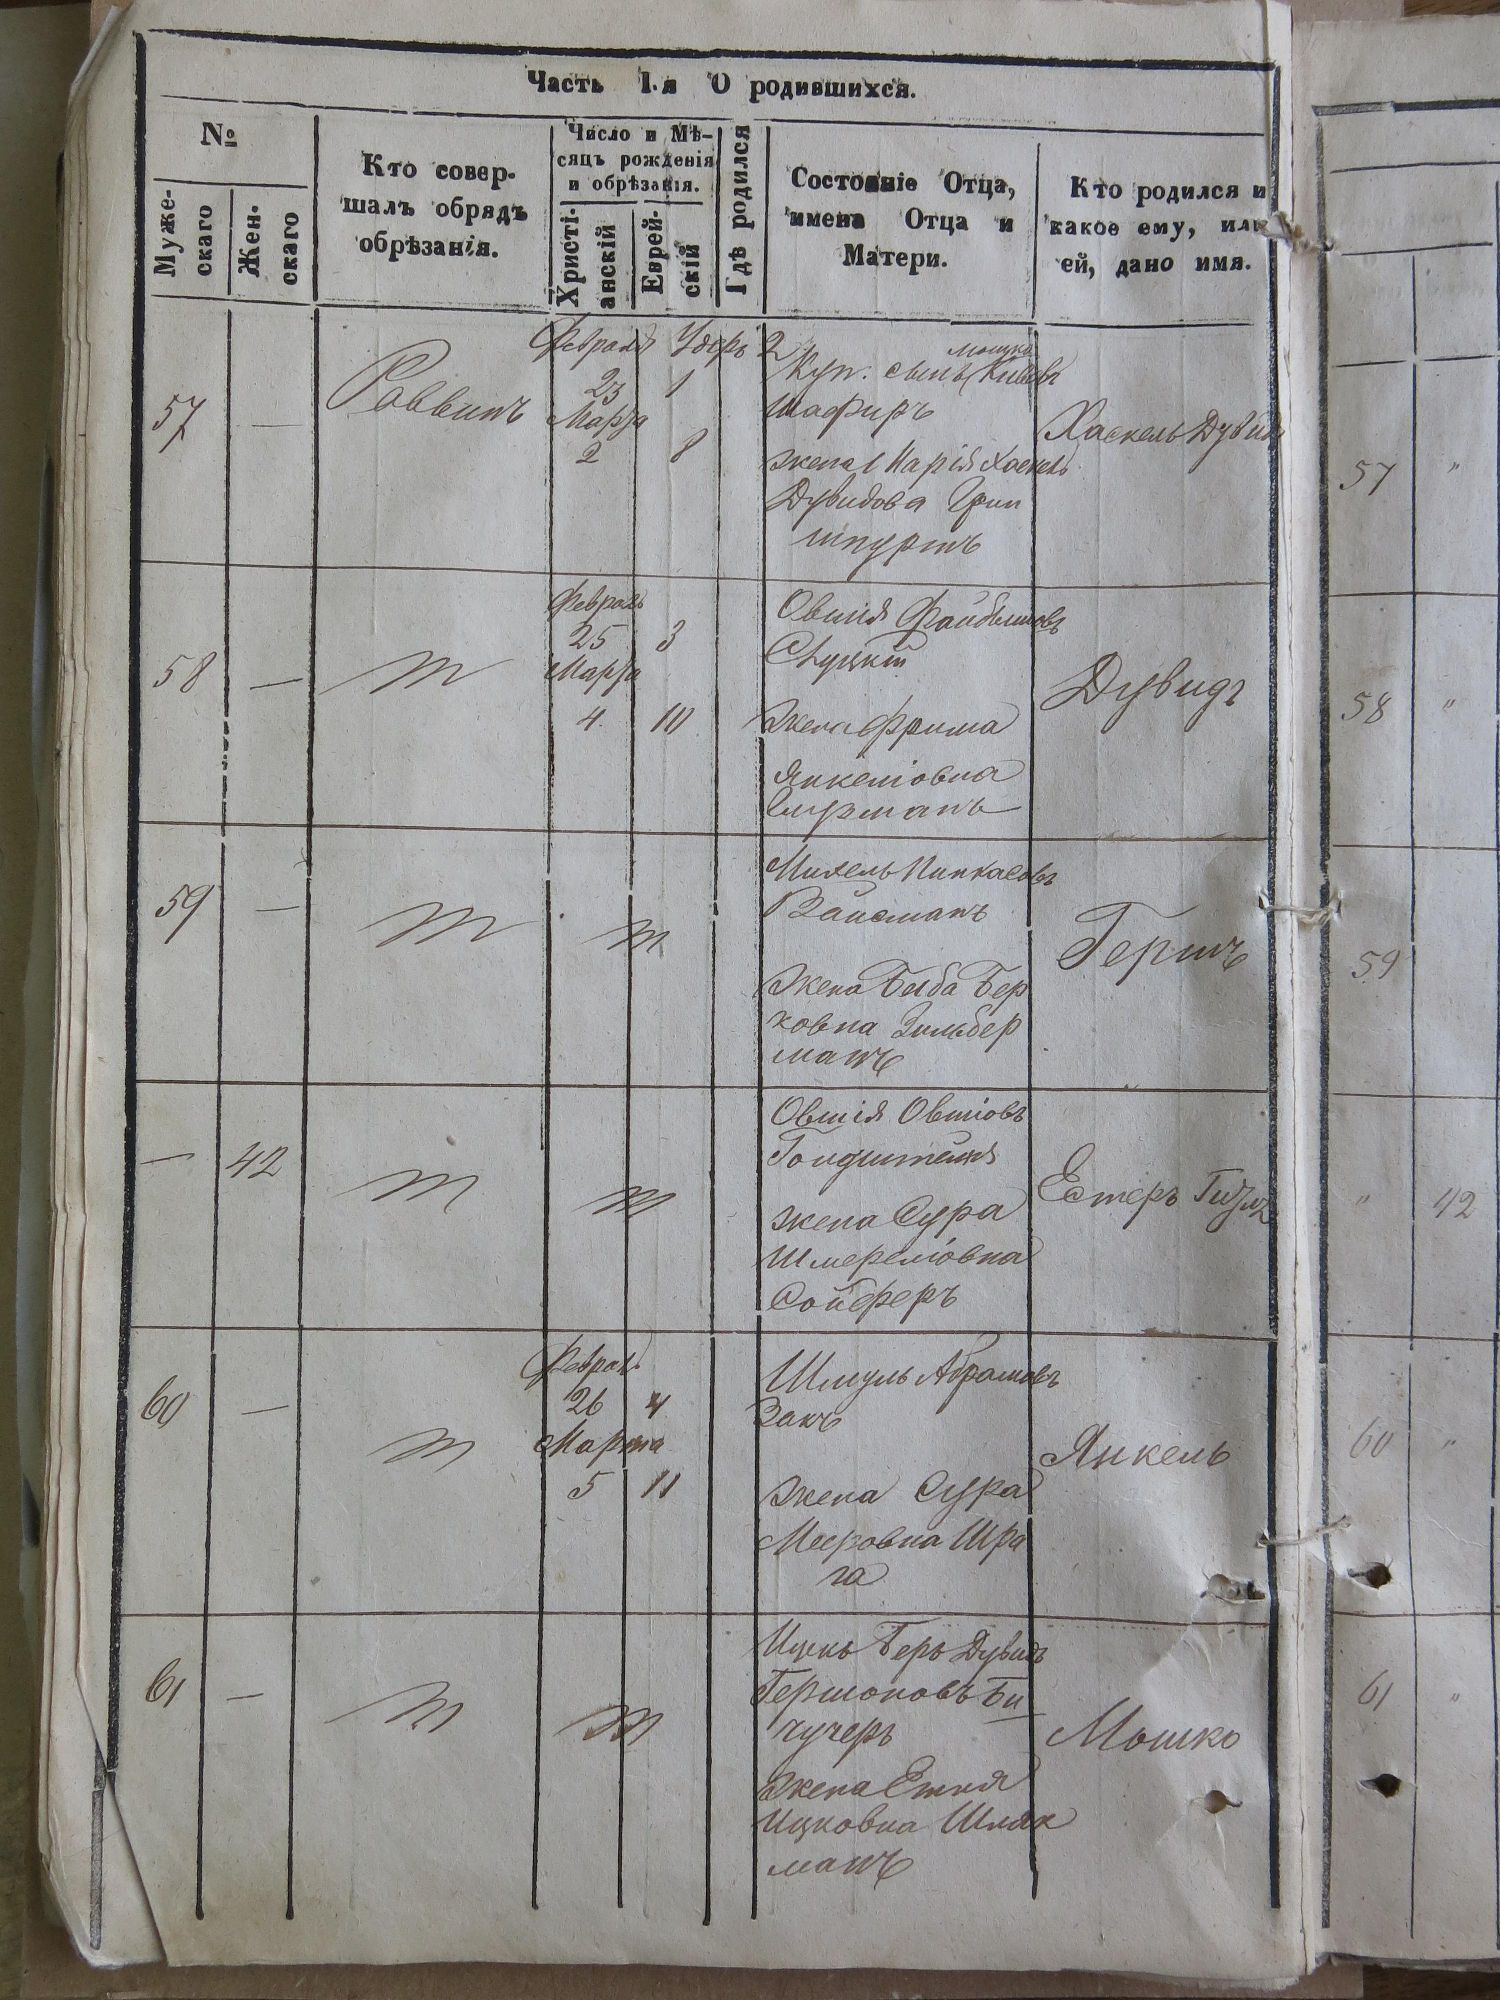 Часть I.я О родившихся.
№
Муже-
скаго
Жен-
скаго
Кто совер-
шалъ обрядъ
обрѣзанія.
Число и Мѣ-
сяцъ рожденія
и обрѣзанія.
Христі-
анскій
Еврей-
скій
Гдѣ родился
Состояніе Отца,
имена Отца и
Матери.
Кто родился и
какое ему, или
ей, дано имя.
57
—
Раввинъ
Февраля
23 1
Марта
2 8
Куп. сынъ Мошко
Шафиръ
жена Хаскель
Дувидова Грин
шпургъ
Хаскель Дувидъ
57 "
58
—
т
Февраль
25 3
Марта
4 10
Овшія Файбышовъ
Слуцкій
жена Фрима
Янкеліовна
Дувидъ
58 "
59
—
т
т
Михель Пинкасовъ
Вайсманъ
жена Бейба Бер
ковна Зильбер
манъ
Гершъ
59
—
42
т
т
Овшія Овшіовъ
Голдштейнъ
жена Сура
Шмереліовна
Сойферъ
Естеръ
" 42
60
—
т
Февраль
26 4
Марта
5 11
Шмуль Абрамовъ
Закъ
жена Сура
Мееровна Шра
га
Янкель
60 "
61
—
т
т
Ицко Беръ Дувидъ
Гершоновъ Би
чучеръ
жена Етля
Ицковна Шляк
манъ
Мошко
61 "